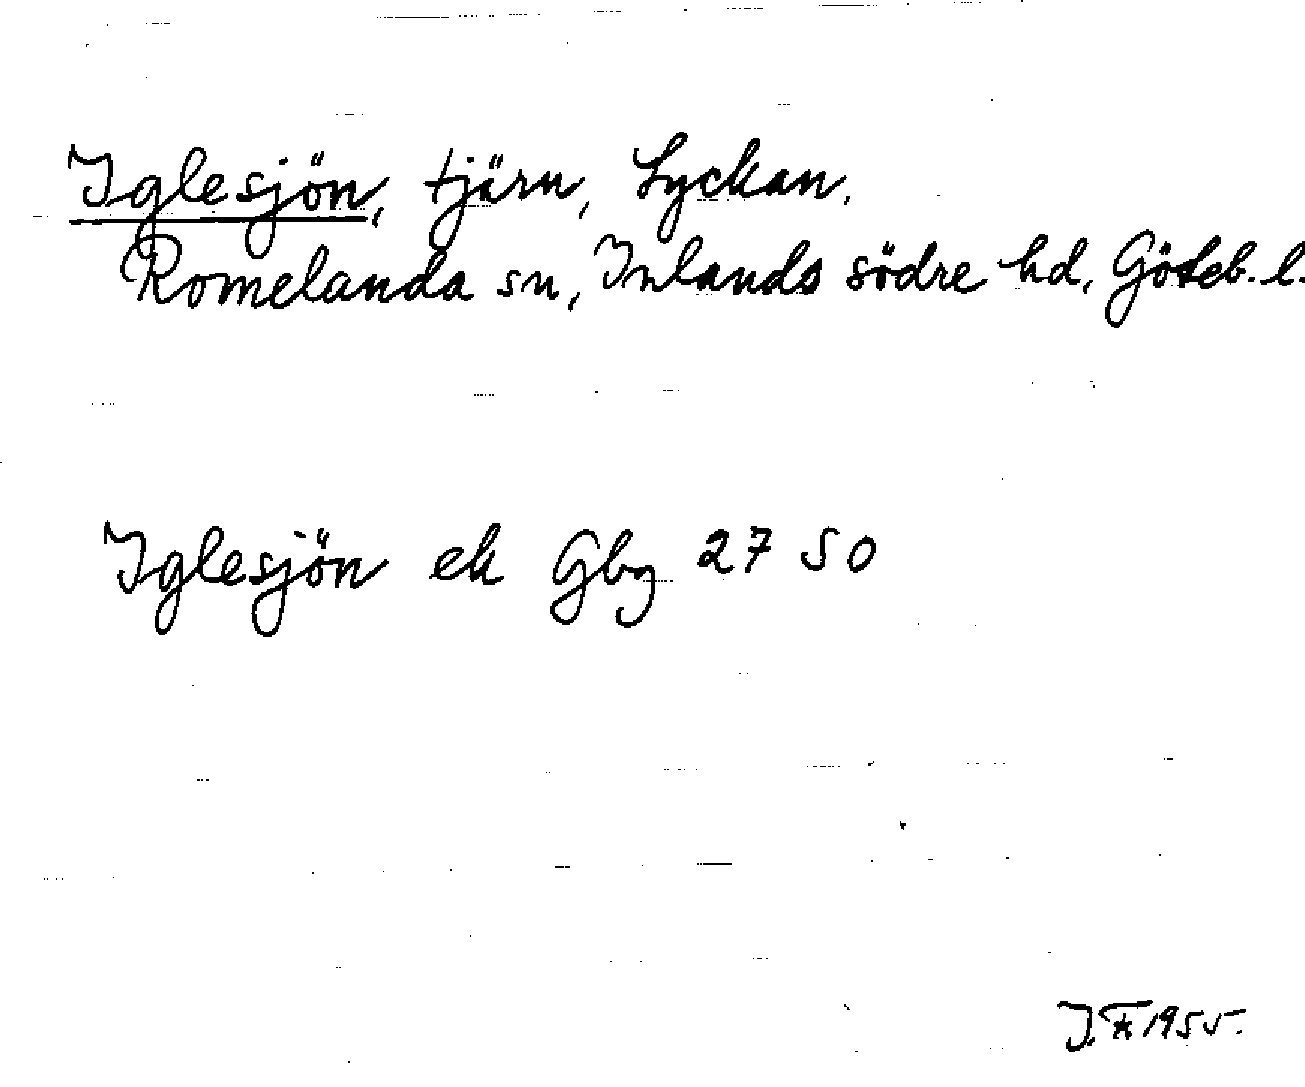 Iglesjön, tjärn, Lyckan,
Romelanda sn, Inlands södre hd, Göteb. l.
Iglesjön ek Gbg 27 50
1955.